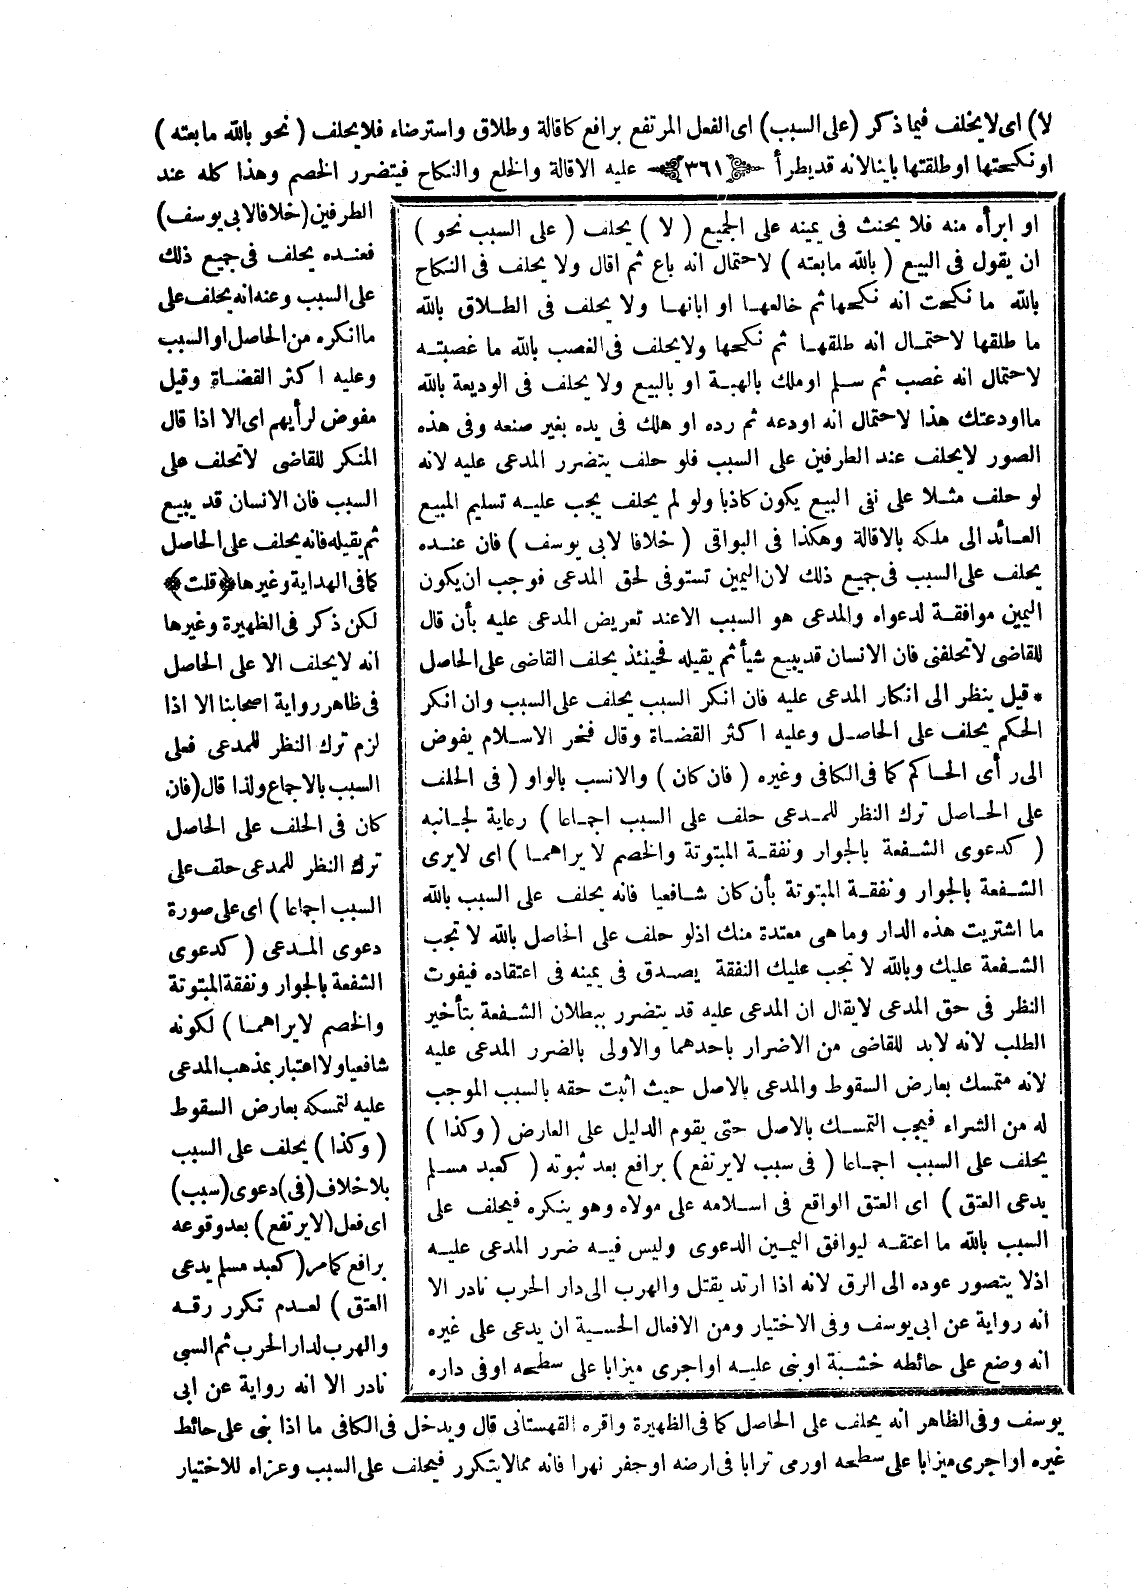 لا) اى لا يحلف فيما ذكر (على السبب) اى الفعل المرتفع برافع كاقالة وطلاق واسترضاء فلا يحلف (نحو بالله مابعته)
او نكحتها او طلقتها باينا لانه قد يطرأ ﴿٣٦١﴾ عليه الاقالة والخلع والنكاح فيتضرر الخصم وهذا كله عند
الطرفين (خلافا لابى يوسف)
فعنده يحلف فى جميع ذلك
على السبب وعنه انه يحلف على
ما انكره من الحاصل او السبب
وعليه اكثر القضاة وقيل
مفوض لرأيهم اى الا اذا قال
المنكر للقاضى لا تحلف على
السبب فان الانسان قد يبيع
ثم يقيله فانه يحلف على الحاصل
كما فى الهداية وغيرها ﴿قلت﴾
لكن ذكر فى الظهيرة وغيرها
انه لا يحلف الا على الحاصل
فى ظاهر رواية اصحابنا الا اذا
لزم ترك النظر للمدعى فعلى
السبب بالاجماع ولذا قال (فان
كان فى الحلف على الحاصل
ترك النظر للمدعى حلف على
السبب اجماعا) اى على صورة
دعوى المدعى (كدعوى
الشفعة بالجوار ونفقة المبتوتة
والخصم لا يراهما) لكونه
شافعيا ولا اعتبار بمذهب المدعى
عليه لتمسكه بعارض السقوط
(وكذا) يحلف على السبب
بلا خلاف (فى) دعوى (سبب)
اى فعل (لا يرتفع) بعد وقوعه
برافع كما مر (كعبد مسلم يدعى
العتق) لعدم تكرر رقه
والهرب لدار الحرب ثم السبى
نادر الا انه رواية عن ابى
يوسف وفى الظاهر انه يحلف على الحاصل كما فى الظهيرة واقره القهستانى قال ويدخل فى الكافى ما اذا بنى على حائط
غيره او اجرى ميزابا على سطحه او رمى ترابا فى ارضه او حفر نهرا فانه ممالا يتكرر فيحلف على السبب وعزاه للاختيار
او ابرأه منه فلا يحنث فى يمينه على الجميع (لا) يحلف (على السبب نحو)
ان يقول فى البيع (بالله مابعته) لاحتمال انه باع ثم اقال ولا يحلف فى النكاح
بالله ما نكحت انه نكحها ثم خالعها او ابانها ولا يحلف فى الطلاق بالله
ما طلقها لاحتمال انه طلقها ثم نكحها ولا يحلف فى الغصب بالله ما غصبته
لاحتمال انه غصب ثم سلم او ملك بالهبة او بالبيع ولا يحلف فى الوديعة بالله
ما اودعتك هذا لاحتمال انه اودعه ثم رده او هلك فى يده بغير صنعه وفى هذه
الصور لا يحلف عند الطرفين على السبب فلو حلف يتضرر المدعى عليه لانه
لو حلف مثلا على نفى البيع يكون كاذبا ولو لم يحلف يجب عليه تسليم المبيع
العائد الى ملكه بالاقالة وهكذا فى البواقى (خلافا لابى يوسف) فان عنده
يحلف على السبب فى جميع ذلك لان اليمين تستوفى لحق المدعى فوجب ان يكون
اليمين موافقة لدعواه والمدعى هو السبب الا عند تعريض المدعى عليه بأن قال
للقاضى لا تحلفنى فان الانسان قد يبيع شيأ ثم يقيله فحينئذ يحلف القاضى على الحاصل
* قيل ينظر الى انكار المدعى عليه فان انكر السبب يحلف على السبب وان انكر
الحكم يحلف على الحاصل وعليه اكثر القضاة وقال فخر الاسلام يفوض
الى رأى الحاكم كما فى الكافى وغيره (فان كان) والانسب بالواو (فى الحلف
على الحاصل ترك النظر للمدعى حلف على السبب اجماعا) رعاية لجانبه
(كدعوى الشفعة بالجوار ونفقة المبتوتة والخصم لا يراهما) اى لا يرى
الشفعة بالجوار ونفقة المبتوتة بأن كان شافعيا فانه يحلف على السبب بالله
ما اشتريت هذه الدار وما هى معتدة منك اذ لو حلف على الحاصل بالله لا تجب
الشفعة عليك وبالله لا تجب عليك النفقة يصدق فى يمينه فى اعتقاده فيفوت
النظر فى حق المدعى لا يقال ان المدعى عليه قد يتضرر ببطلان الشفعة بتأخير
الطلب لانه لابد للقاضى من الاضرار باحدهما والاولى بالضرر المدعى عليه
لانه متمسك بعارض السقوط والمدعى بالاصل حيث اثبت حقه بالسبب الموجب
له من الشراء فيجب التمسك بالاصل حتى يقوم الدليل على العارض (وكذا)
يحلف على السبب اجماعا (فى سبب لا يرتفع) برافع بعد ثبوته (كعبد مسلم
يدعى العتق) اى العتق الواقع فى اسلامه على مولاه وهو ينكره فيحلف على
السبب بالله ما اعتقه ليوافق اليمين الدعوى وليس فيه ضرر المدعى عليه
اذ لا يتصور عوده الى الرق لانه اذا ارتد يقتل والهرب الى دار الحرب نادر الا
انه رواية عن ابى يوسف وفى الاختيار ومن الافعال الحسية ان يدعى على غيره
انه وضع على حائطه خشبة او بنى عليه او اجرى ميزابا على سطحه او فى داره